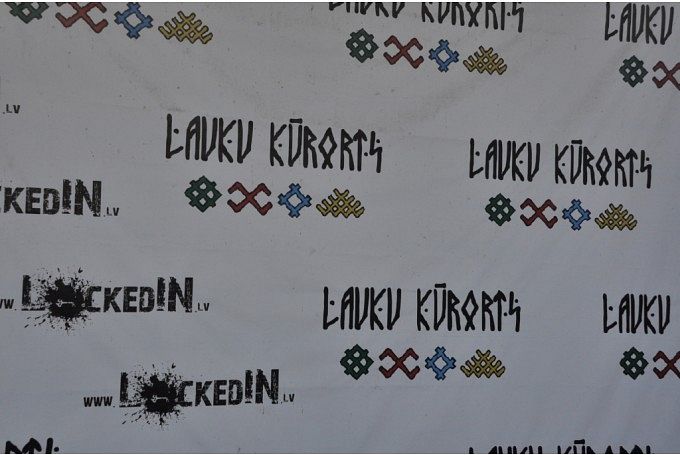 LAUKU KŪRORTS
LAUKU
.LV
LAUKU KŪRORTS
LAUKU KŪRORTS
CKEDIN.LV
WW.LOCKEDIN.LV
LAUKU KŪRORTS
LAUKU
WWW.LOCKEDIN.LV
RTS
LAUKU KŪRORTS